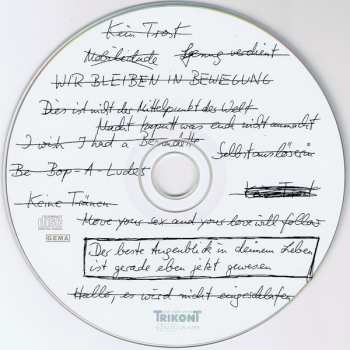 Kein Trost
Mobilidude Genug verdient
WIR BLEIBEN IN BEWEGUNG
Dies ist nicht der Mittelpunkt der Welt
Macht kaputt was euch nicht anmacht
I wish I had a Bernadette
Selbstauslöserin
Be-Bop-A-Ludes
Keine Tränen
Move your sex and your love will follow
GEMA
Der beste Augenblick in deinem Leben
ist gerade eben jetzt gewesen
Hallo, es wird nicht eingeschlafen
TRIKONT